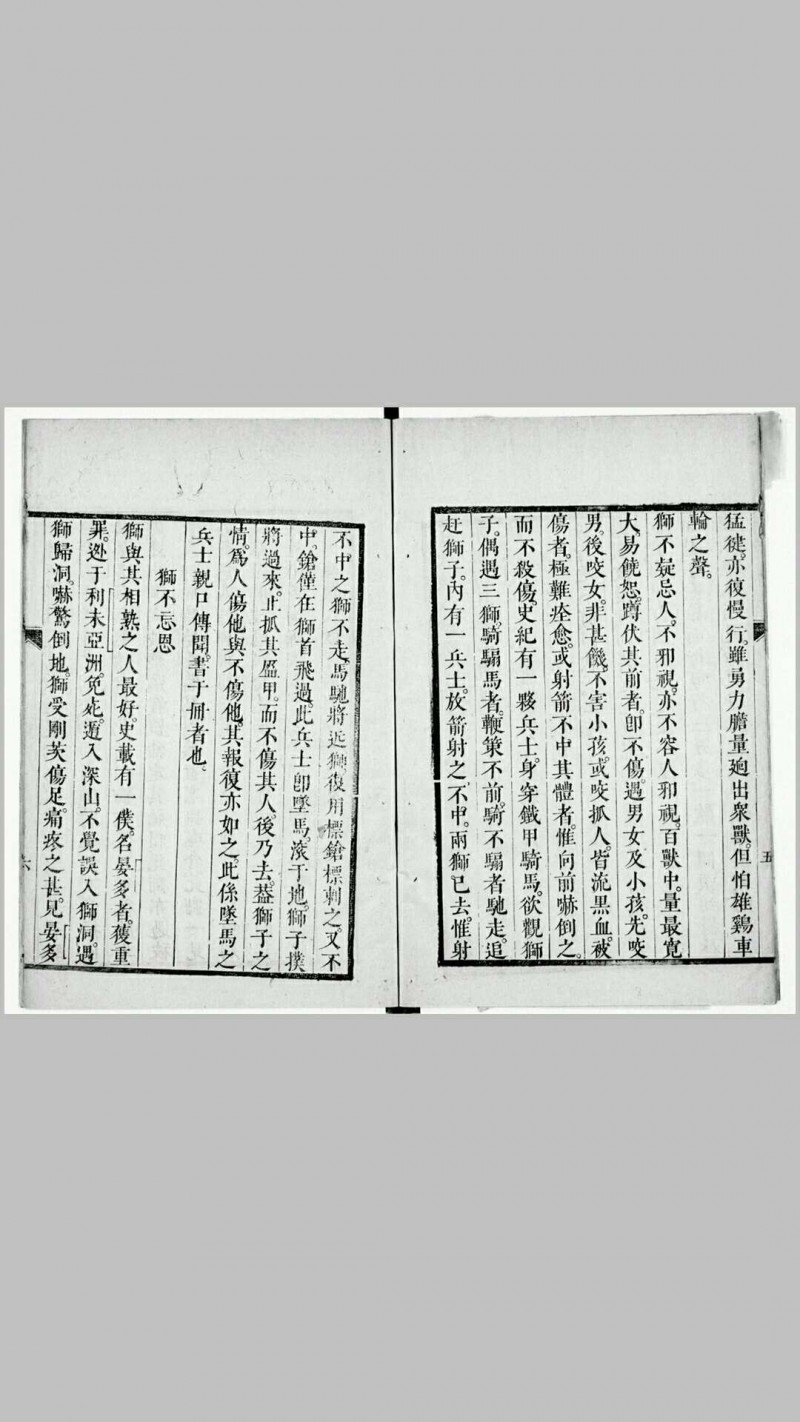 猛健。亦復慢行。雖勇力膽量廹出衆獸。但怕雄鷄車
輪之聲。
獅不疑忌人。不邪視。亦不容人邪視。百獸中。量最寛
大。易饒恕。蹲伏其前者。卽不傷。遇男女及小孩。先咬
男。後咬女。非甚饑。不害小孩。或咬抓人。皆流黒血。被
傷者。極難痊愈。或射箭不中其體者。惟向前嚇倒之。
而不殺傷。史紀有一夥兵士。身穿鐵甲騎馬。欲觀獅
子。偶遇三獅。騎騸馬者。鞭策不前。騎不騸者馳走。追
赶獅子。內有一兵士。放箭射之。不中。兩獅已去。惟射
五
不中之獅不走。馬馳將近獅。復用標鎗標刺之。又不
中。鎗僅在獅首飛過。此兵士卽墜馬。滚于地。獅子撲
將過來。止抓其盔甲。而不傷其人。後乃去。葢獅子之
情。爲人傷他與不傷他。其報復亦如之。此係墜馬之
兵士親口傳聞。書于冊者也。
獅不忘恩
獅與其相熟之人最好。史載有一僕。名晏多者。獲重
罪。迯于利未亞洲。免死。遁入深山。不覺誤入獅洞。遇
獅歸洞。嚇驚倒地。獅受剛茨傷足。痛疼之甚。見晏多
六